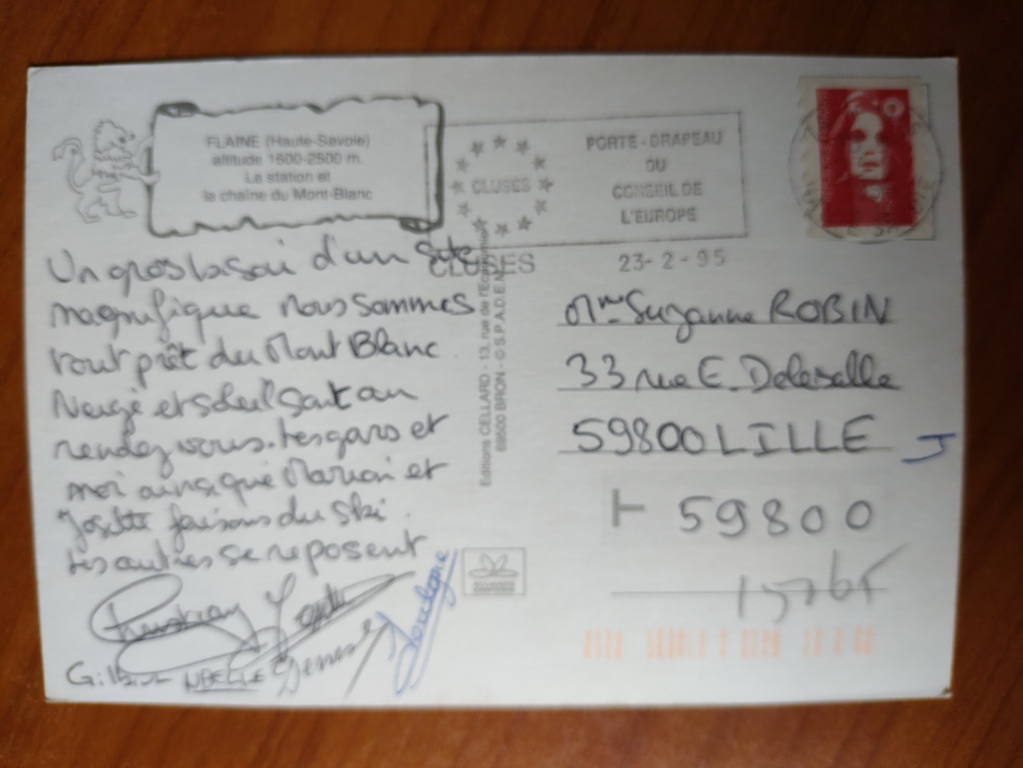 FLAINE (Haute-Savoie)
altitude 1600-2500 m.
La station et
la chaîne du Mont-Blanc
CLUSES
PORTE-DRAPEAU
DU
CONSEIL DE
L'EUROPE
CLUSES
23-2-95
Un gros d'un site
magnifique Nous sommes
tout prêt du Mont Blanc
Neige et soleil sont au
rendez vous. Les gars et
moi ainsi que Marion et
Josette faisons du ski.
Les autres se reposent
Josette
Gilbert NOELLE
Editions CELLARD - 13, rue de l'Economie
69500 BRON - © S.P.A.D.E.M.
Mme Suzanne ROBIN
33 rue E. Delesalle
59800 LILLE
59800